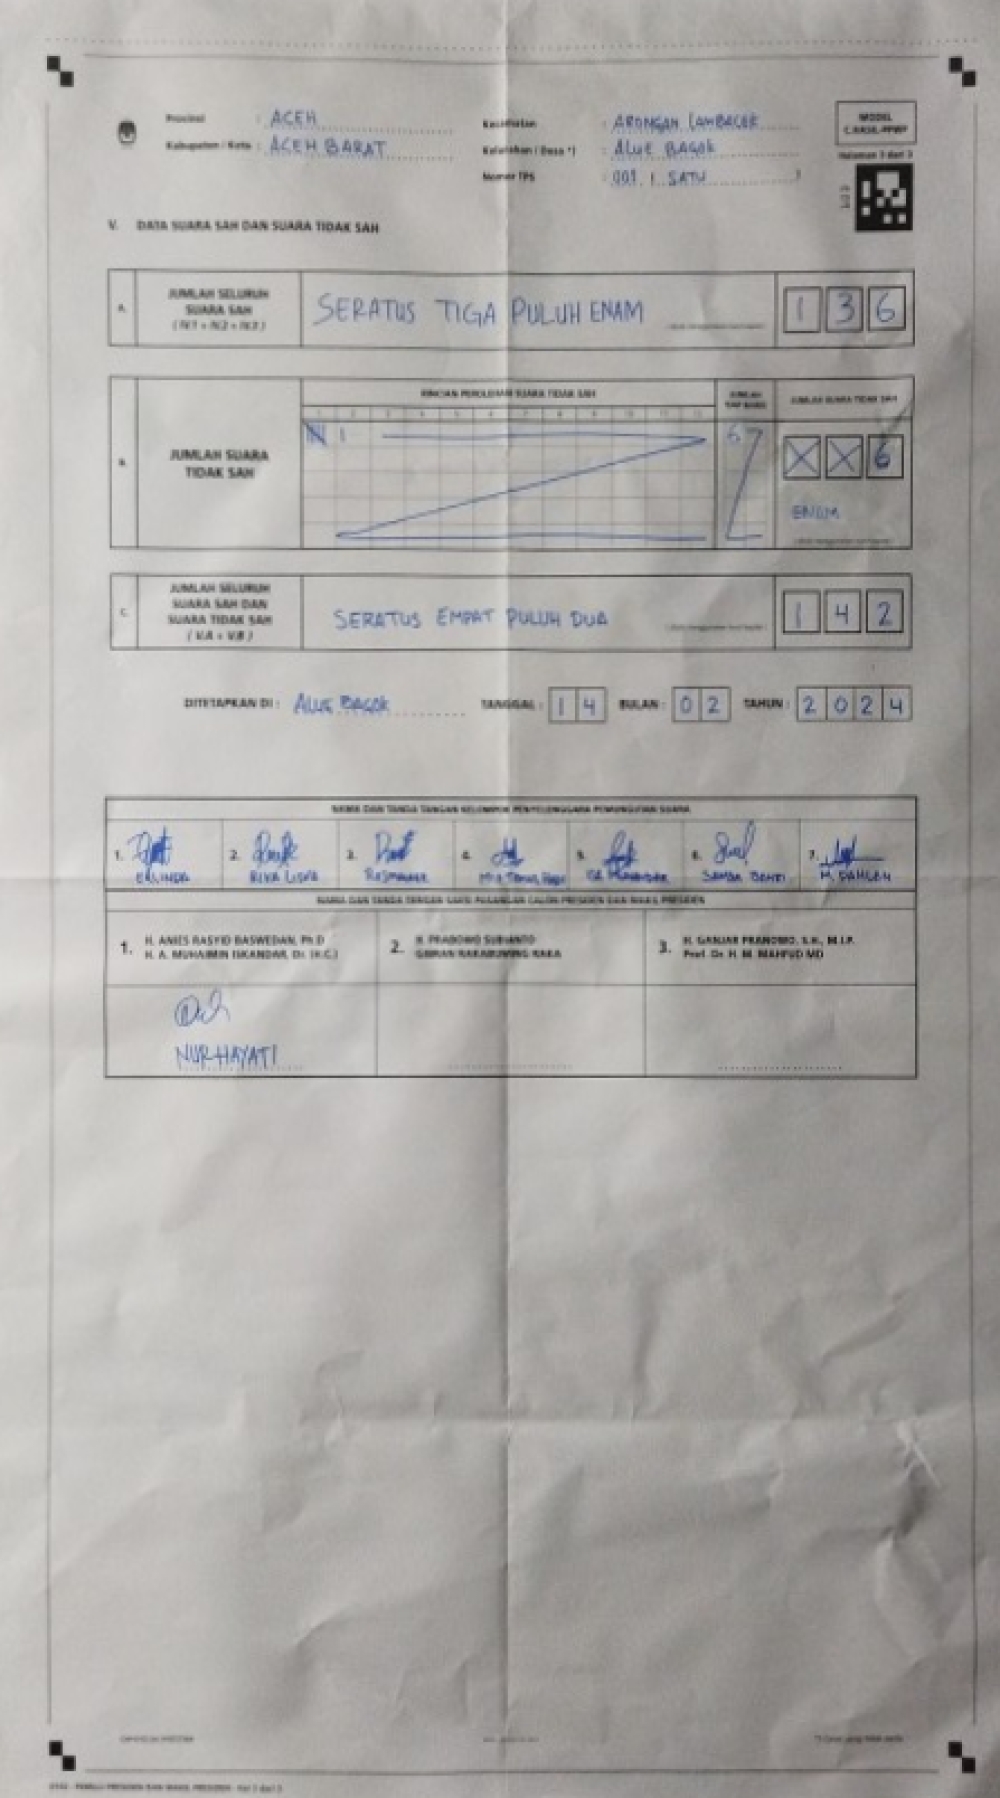 Provinsi : ACEH
Kabupaten / Kota : ACEH BARAT
Kecamatan : ARONGAN LAMBALEK
Kelurahan / Desa *) : ALUE BAGOK
Nomor TPS : 001 ( SATU )
MODEL
C.HASIL-PPWP
Halaman 3 dari 3
V. DATA SUARA SAH DAN SUARA TIDAK SAH
A. JUMLAH SELURUH
SUARA SAH
( IV.1 + IV.2 + IV.3 )
SERATUS TIGA PULUH ENAM
1 3 6
B. JUMLAH SUARA
TIDAK SAH
RINCIAN PEROLEHAN SUARA TIDAK SAH
1 2 3 4 5 6 7 8 9 10 11 12
6
JUMLAH SUARA TIDAK SAH
X X 6
ENAM
C. JUMLAH SELURUH
SUARA SAH DAN
SUARA TIDAK SAH
( V.A + V.B )
SERATUS EMPAT PULUH DUA
1 4 2
DITETAPKAN DI : ALUE BAGOK TANGGAL : 1 4 BULAN : 0 2 TAHUN : 2 0 2 4
NAMA DAN TANDA TANGAN KELOMPOK PENYELENGGARA PEMUNGUTAN SUARA
1. 2. 3. 4. 5. 6. 7.
ERLINDA
M. DAHLAN
NAMA DAN TANDA TANGAN SAKSI PASANGAN CALON PRESIDEN DAN WAKIL PRESIDEN
1. H. ANIES RASYID BASWEDAN, Ph.D
H. A. MUHAIMIN ISKANDAR, Dr. (H.C.)
2. H. PRABOWO SUBIANTO
GIBRAN RAKABUMING RAKA
3. H. GANJAR PRANOWO, S.H., M.I.P.
Prof. Dr. H. M. MAHFUD MD
NURHAYATI